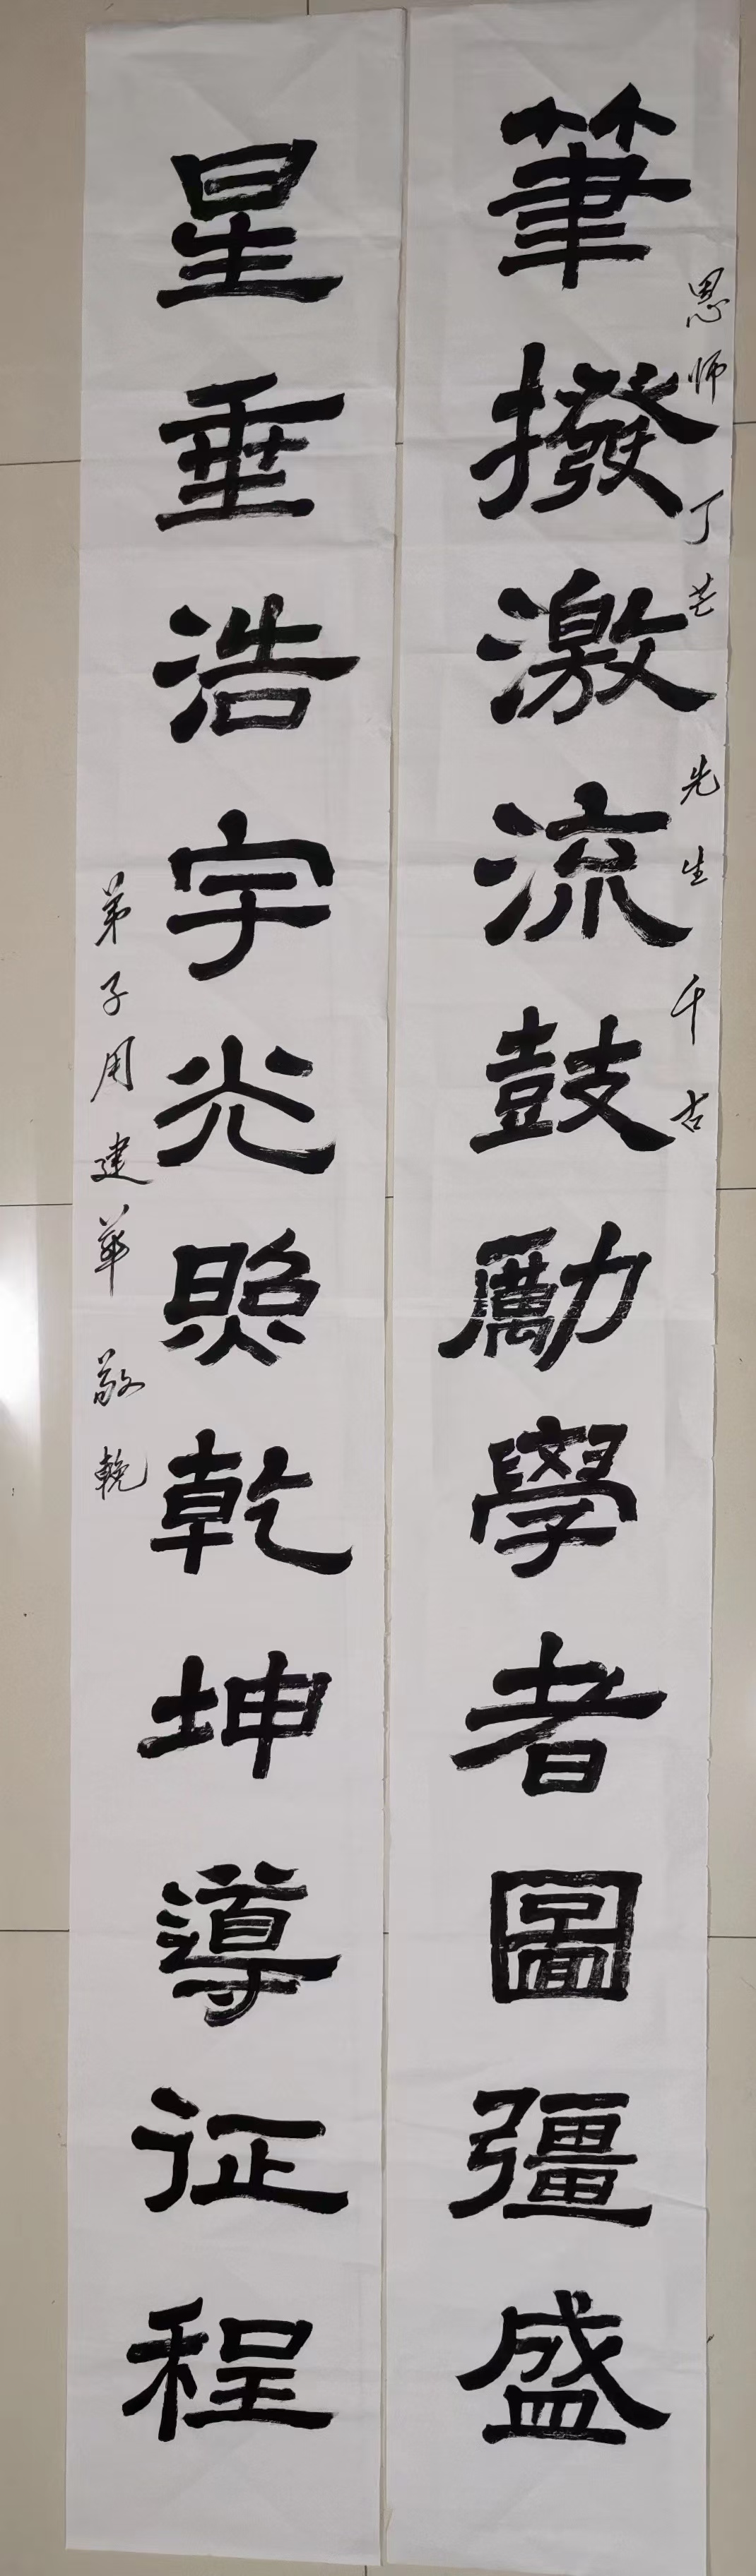 恩师丁芒先生千古
筆撥激流鼓勵學者圖彊盛
星垂浩宇光照乾坤導征程
弟子周建华敬輓